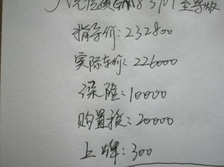 指导价:232800
实际车价:226000
保险:10000
购置税:20000
上牌:300